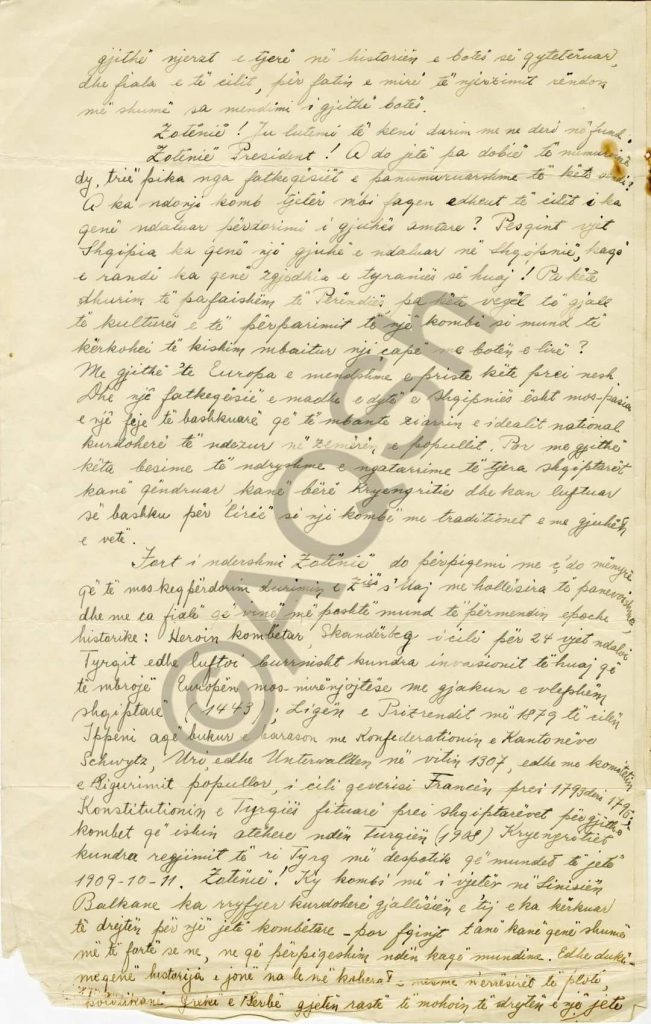 gjithë njerzt e tjerë në historiën e botës së qytetëruar,
dhe fiala e të cilit, për fatin e mirë të njerzimit rëndon
më shumë sa mendimi i gjithë botës.
Zotënië! Ju lutemi të keni durim me ne deri në fund.
Zotënië President! A do jetë pa dobië të numurojmë
dy, trië pika nga fatkeqësiët e panumuruarshme të këtë
A ka ndonjë komb tjetër mbi faqen edheut të cilit i ka
qenë ndaluar përdorimi i gjuhës amtare? Pesqint vjet
Shqipia ka qenë një gjuhë e ndaluar në Shqipnië, kaqë
e randë ka qenë zgjedhia e tyraniës së huaj! Pa këtë
dhurim të pafaishëm të Perëndiës, pa këtë vegël të gjall
të kulturës e të përparimit të një kombi si mund të
kërkohei të kishim mbaitur nji çapë me botën e lirë?
Me gjithë të Europa e mendshme e priste këte prei nesh.
Dhe një fatkeqësië e madhe e dytë e Shqipniës ësht mos-pasia
e një feje të bashkuarë që të mbante ziarrin e idealit national
kurdoherë të ndezur në zemërën e popullit. Por me gjithë
këta besime të ndryshme e ngatarrime të tjera shqiptarët
kanë qëndruar kanë bërë Kryengritië dhe kan luftuar
së bashku për lirië si nji kombë me traditionet e me gjuhën
e vetë.
Fort i ndershmi Zotënië do përpiqemi me ç'do mënyrë
që të mos keqpërdorim durimin e Ziës s'uaj me hollësira të panevojshme,
dhe me ca fialë që vinë më poshtë mund të përmendim epoche
historike: Heroin kombëtar, Skandërbeg i cili për 24 vjet ndaloi
Tyrqit edhe luftoi burrnisht kundra invasionit të huaj që
të mbrojë Europën mos-mirënjojtëse me gjakun e vlefshëm
shqiptarë (1443), Ligën e Prizrendit më 1879 të cilën
Ippeni aqë bukur e barason me Konfederationin e Kantonëve
Schwytz, Uri, edhe Unterwalden në vitin 1307, edhe me komitetin
e Sigurimit popullor, i cili qeverisi Francën prei 1793 deri 1795,
Konstitutionin e Tyrqiës fituarë prei shqiptarëvet për gjithë
kombet që ishin atëhere ndën turqiën (1908) Kryengritiët
kundra regjimit të ri Tyrq më despotik që mundet të jetë
1909-10-11. Zotënië! Ky komb më i vjetër në Sinisiën
Balkane ka rryfyer kurdoherë gjallësiën e tij e ka kërkuar
të drejtën për një jetë kombëtare - por fqinjt tanë kanë qenë shumë
më të fortë se ne, ne që përpiqeshim ndën kaqë mundime. Edhe duke
mëqenë historija e jonë na le në kohëra më nërrësirët të plotë,
Greke e Serbë gjetën rastë të mohoin të drejtën e një jetë